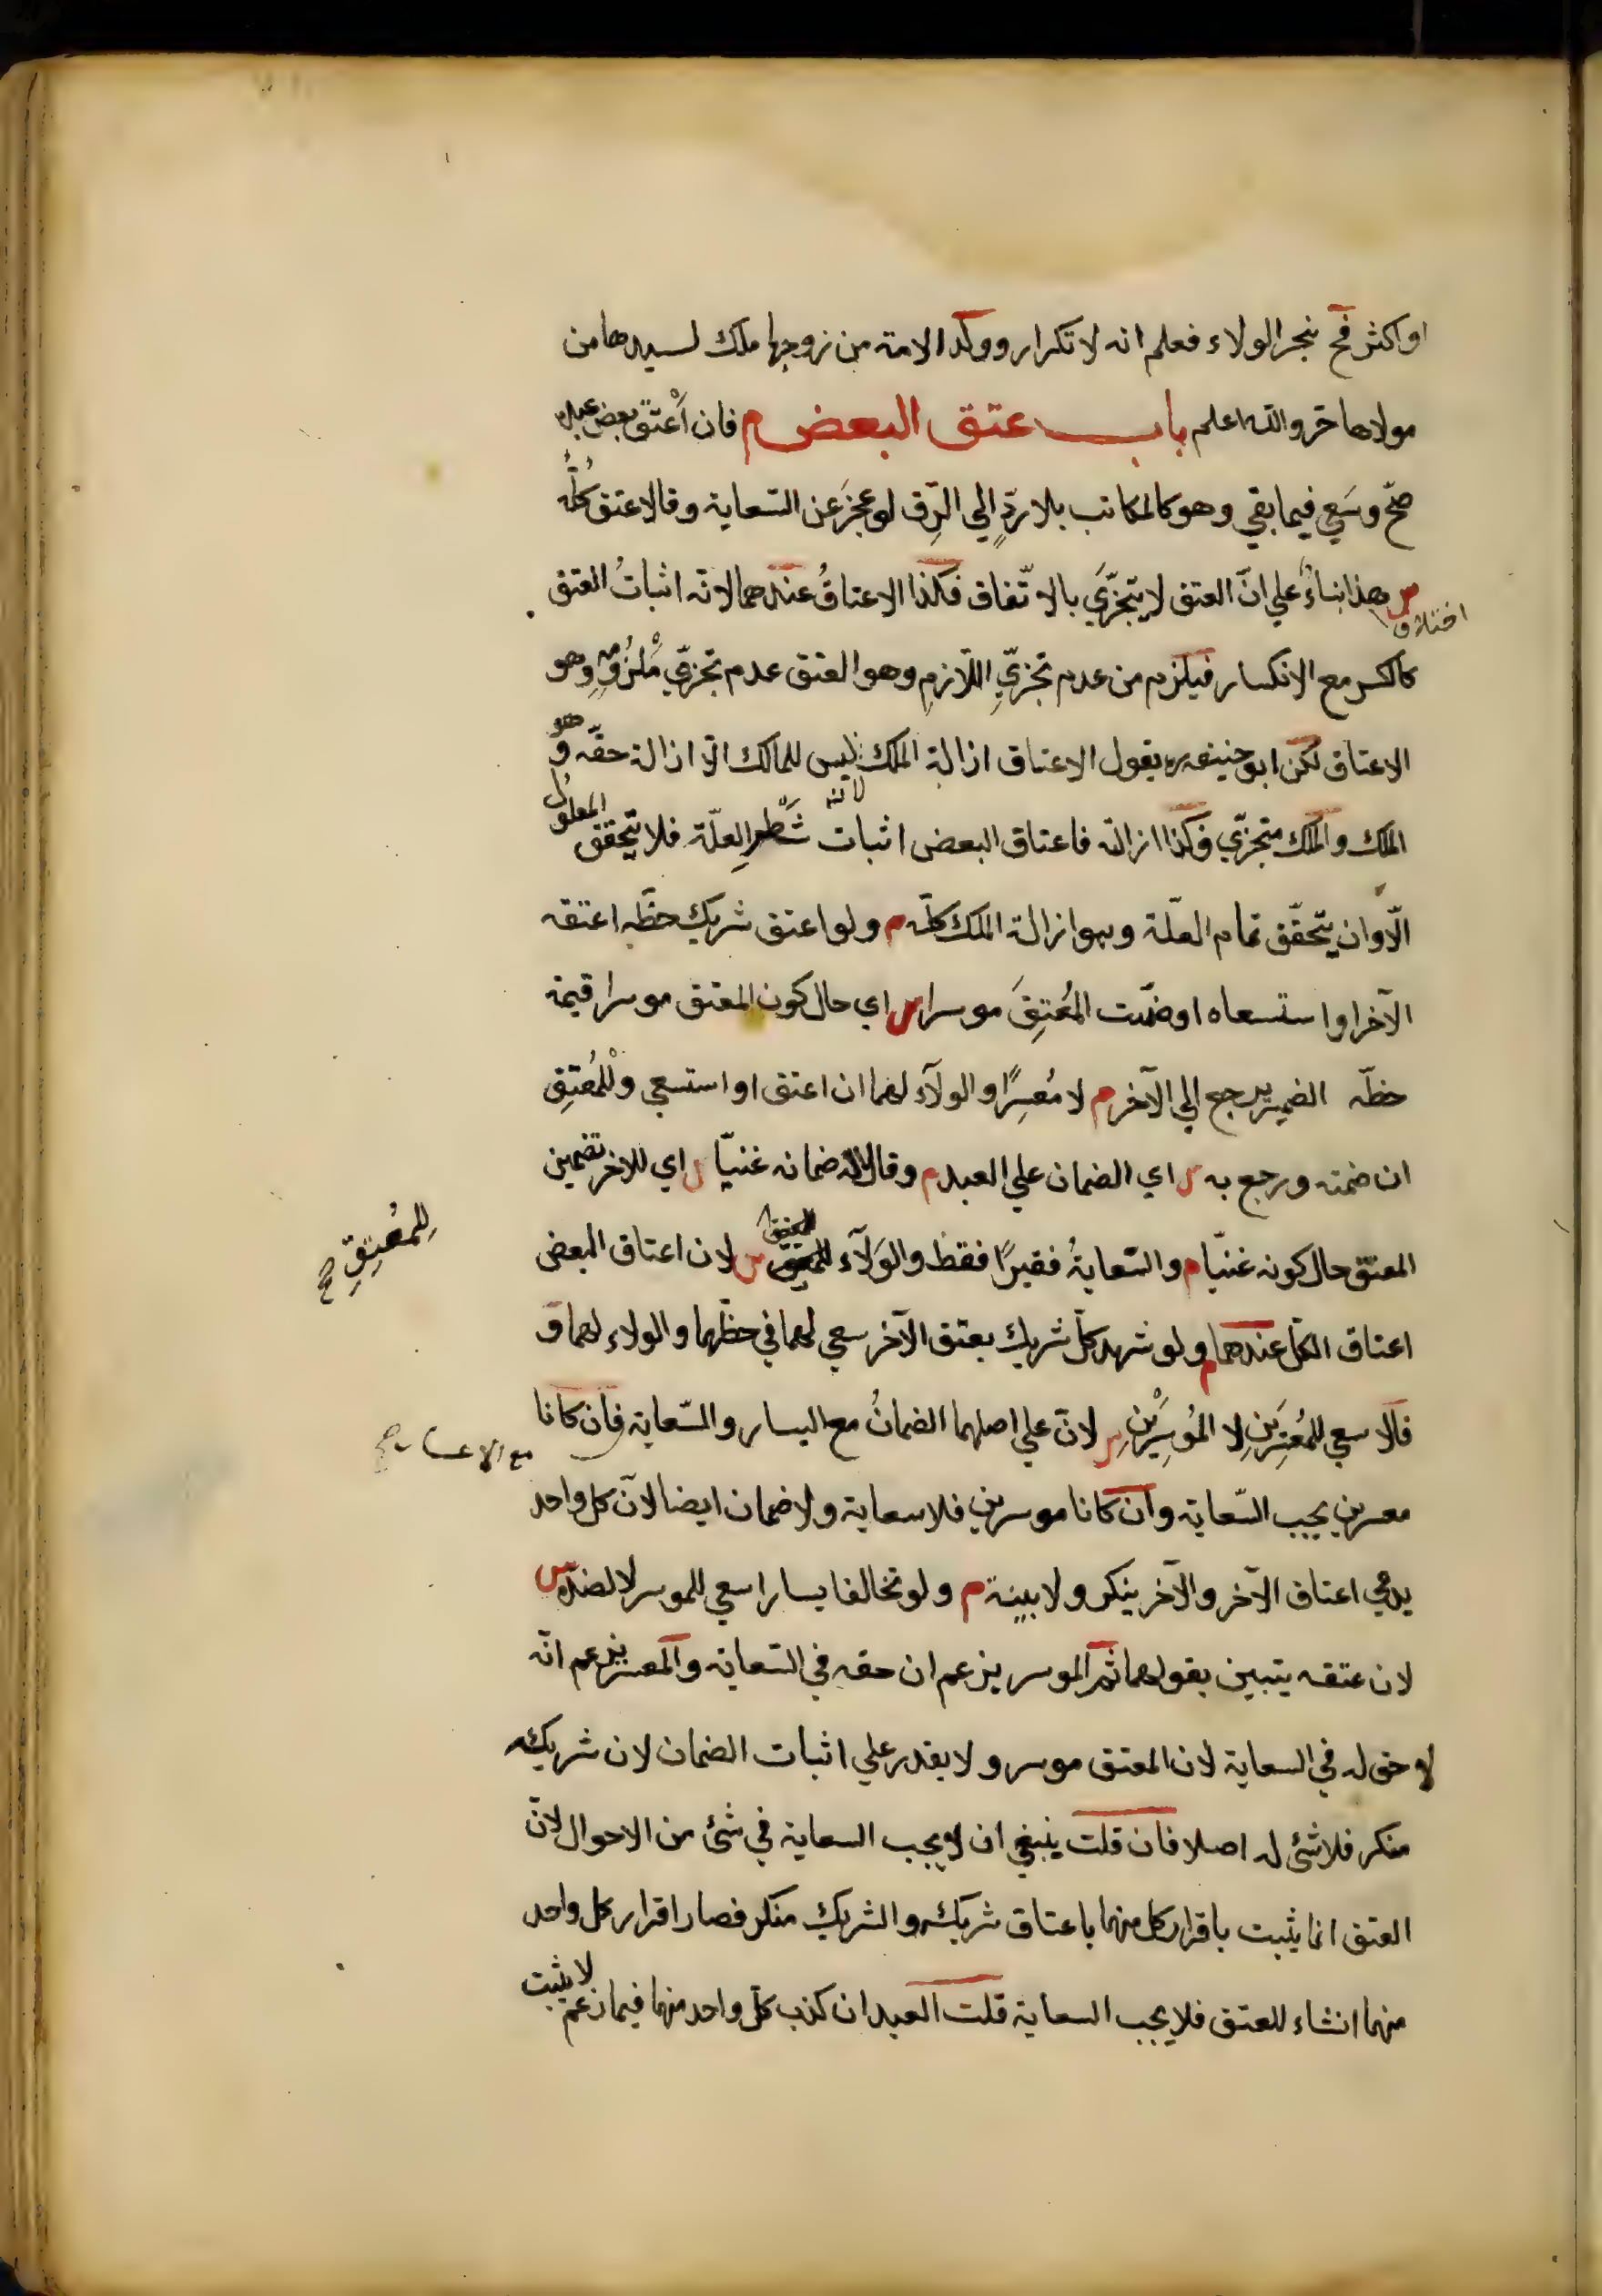 او اكثر فح ينجر الولاء فعلم انه لا تكرار وولد الامة من زوجها ملك لسيدها من
مولاها حر والله اعلم باب عتق البعض م فان أعتق بعض عبده
صحّ وسَعي فيما بقي وهو كالمكاتب بلا ردٍّ الي الرِّق لو عجزَ عن السّعاية وقالا عتق كلُّهُ
س هذا بناءً علي انّ العتق لا يتجزّي بالاتّفاق فكذا الاعتاقُ عندهما لانّه اثباتُ العتق
اختلاف
كالكسر مع الانكسار فيلزم من عدم تجزّيِ اللّازمِ وهو العتق عدم تجزّي مَلزُومِهِ وهو
الاعتاق لكن ابو حنيفه ره يقول الاعتاق ازالة الملك لانه ليس للمالك الّا ازالة حقّه وهو
الملك والملك متجزّي فكذا ازالته فاعتاق البعض اثبات شَطْرِ العلّة فلا يتحقق المعلول
الّا وان يتحقّق تمام العلّة وهو ازالة الملك كلّه م ولو اعتق شريك حظّه اعتقه
الآخر او استسعاه او ضمّن المُعتِقَ موسرا س اي حال كون المعتق موسرا قيمة
حظّه الضمير يرجع الي الآخر م لا مُعسِرًا والولآء لهما ان اعتق او استسعي وللمُعتِق
ان ضمنه ورجع به س اي الضمان علي العبد م وقالا له ضمانه غنيّا س اي للاخر تضمين
المعتق حال كونه غنيّا م والسّعايةُ فقيرًا فقط والوَلآء للمعتق س لان اعتاق البعض
للمُعتِقِ صح
اعتاق الكلّ عندهما م ولو شهد كلّ شريك بعتق الآخر سعي لهما في حظّهما والولاء لهما و
قالا سعي للمُعسِرَينِ لا المُوسِرَينِ س لانّ علي اصلهما الضمانُ مع اليسار والسّعاية فان كانا
مع الاعسار صح
معسرين يجب السّعاية وان كانا موسرين فلا سعاية ولا ضمان ايضا لانّ كل واحد
يدعي اعتاق الآخر والآخر ينكر ولا بينة م ولو تخالفا يسارا سعي للموسر لا لضدّه س
لان عتقه يتبين بقولهما ثم الموسر يزعم ان حقه في السّعاية والمعسر يزعم انّه
لا حق له في السعاية لان المعتق موسر ولا يقدر علي اثبات الضمان لان شريكه
منكر فلا شئ له اصلا فان قلت ينبغي ان لا يجب السعاية في شئ من الاحوال لانّ
العتق انما يثبت باقرار كل منهما باعتاق شريكه والشريك منكر فصار اقرار كل واحد
منهما انشاء للعتق فلا يجب السعاية قلت العبد ان كذب كلّ واحد منهما فيما زعم لا يثبت